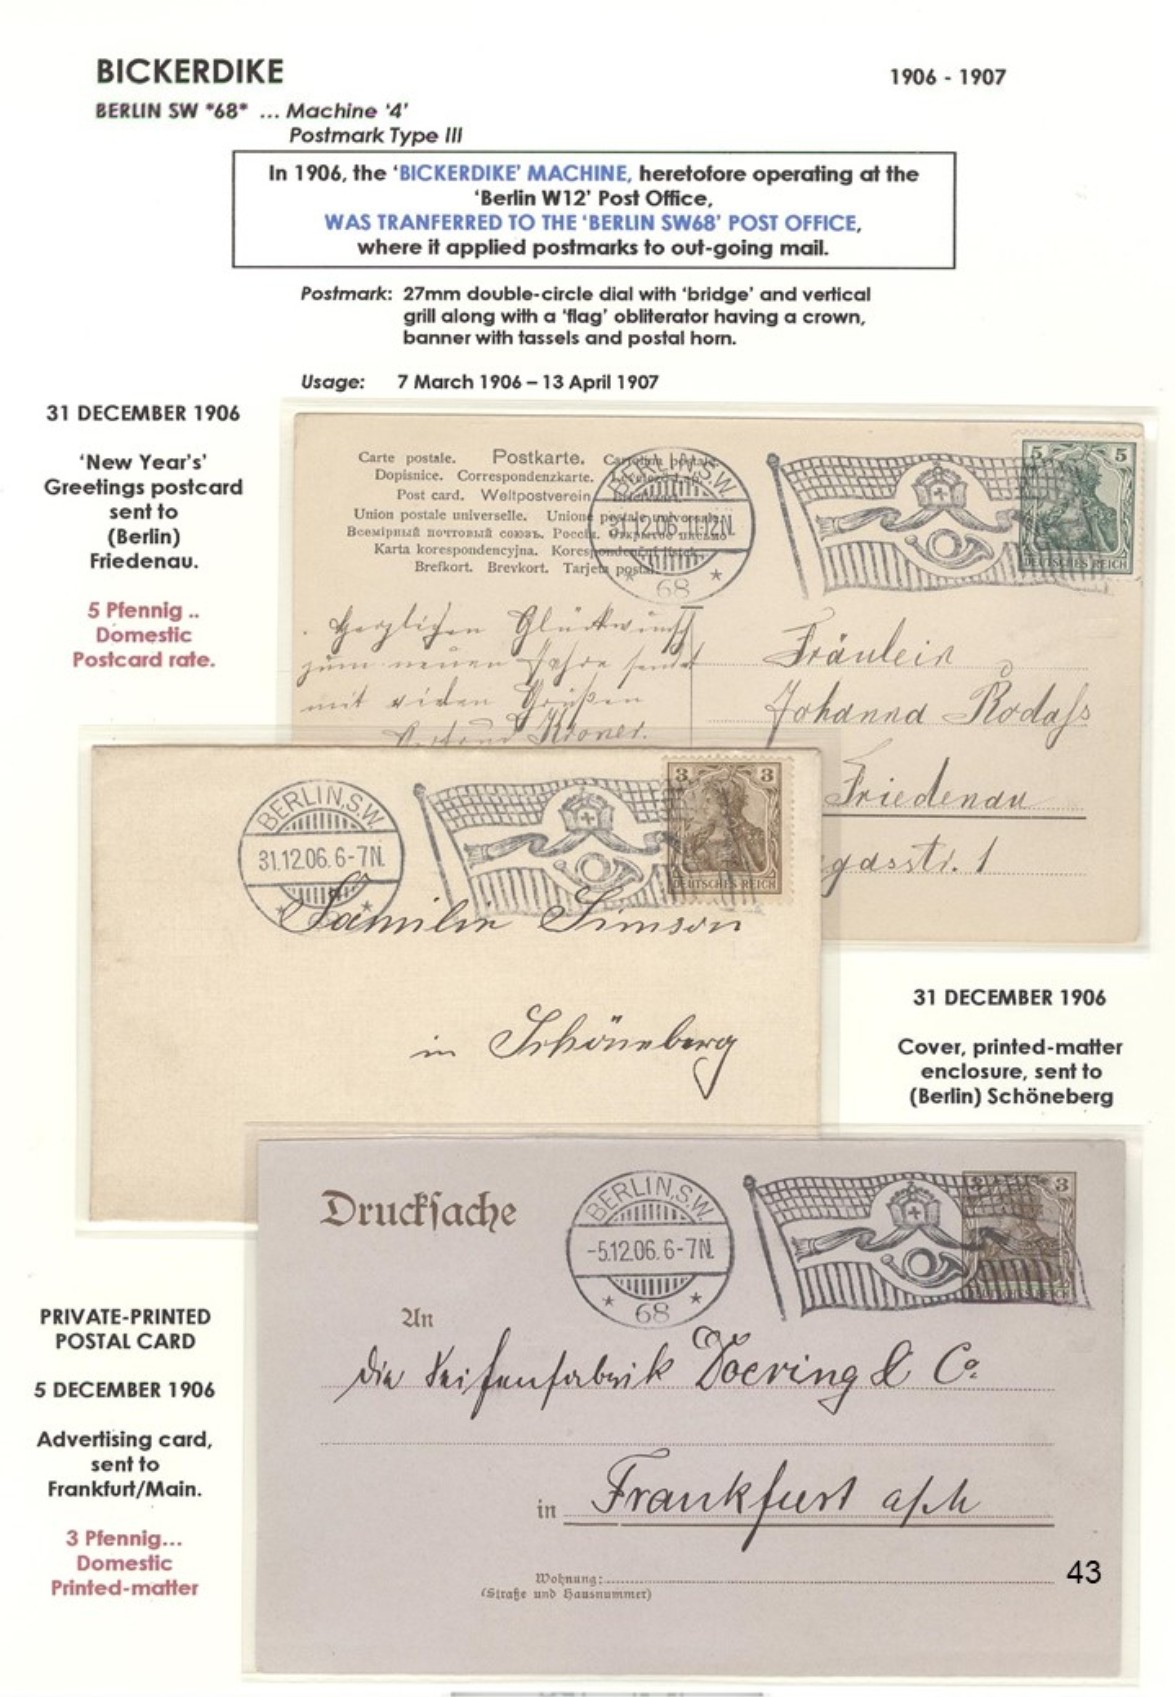 BICKERDIKE
1906 - 1907
BERLIN SW *68* ... Machine '4'
Postmark Type III
In 1906, the 'BICKERDIKE' MACHINE, heretofore operating at the
'Berlin W12' Post Office,
WAS TRANFERRED TO THE 'BERLIN SW68' POST OFFICE,
where it applied postmarks to out-going mail.
Postmark: 27mm double-circle dial with 'bridge' and vertical
grill along with a 'flag' obliterator having a crown,
banner with tassels and postal horn.
Usage: 7 March 1906 – 13 April 1907
31 DECEMBER 1906
'New Year's'
Greetings postcard
sent to
(Berlin)
Friedenau.
5 Pfennig ..
Domestic
Postcard rate.
Carte postale. Postkarte. Cartolina postale
Dopisnice. Correspondenzkarte.
Post card. Weltpostverein
Union postale universelle. Unione postale universale.
Всемірный почтовый союзъ. Россія. Открытое письмо
Karta korespondencyjna. Korespondenční lístek.
Brefkort. Brevkort. Tarjeta postal.
BERLIN,S.W.
31.12.06.11-12N.
* 68 *
5 5
DEUTSCHES REICH
Herzlichen Glückwunsch
zum neuen Jahre sendet
mit vielen Grüßen
Kroner.
Fräulein
Johanna
Friedenau
gasstr. 1
BERLIN,S.W.
31.12.06.6-7N.
3 3
DEUTSCHES REICH
Familie Simson
in Schöneberg
31 DECEMBER 1906
Cover, printed-matter
enclosure, sent to
(Berlin) Schöneberg
Drucksache
BERLIN,S.W.
-5.12.06.6-7N.
* 68 *
3 3
An
die Seifenfabrik Doering & Co.
in Frankfurt a/M
Wohnung:
(Straße und Hausnummer)
PRIVATE-PRINTED
POSTAL CARD
5 DECEMBER 1906
Advertising card,
sent to
Frankfurt/Main.
3 Pfennig...
Domestic
Printed-matter
43